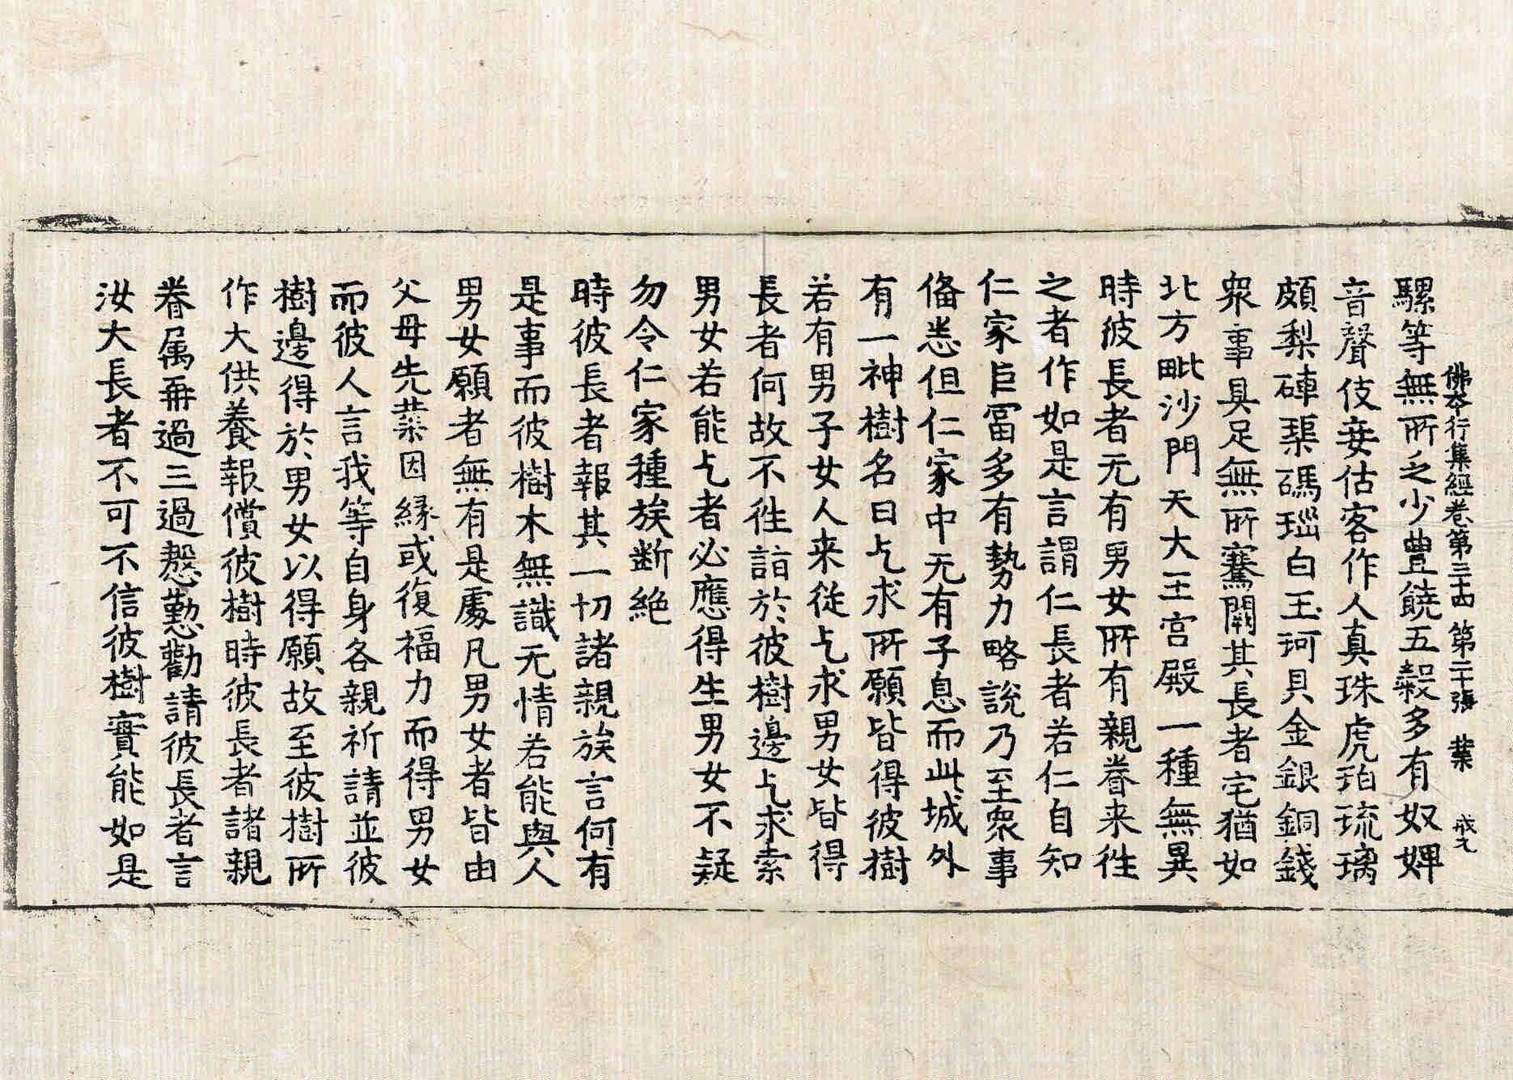 佛本行集經卷第三十四 第二十張 業
騾等無所乏少豊饒五穀多有奴婢
音聲伎妾估客作人真珠虎珀琉璃
頗梨硨磲碼瑙白玉珂貝金銀銅錢
衆事具足無所騫闕其長者宅猶如
北方毗沙門天大王宮殿一種無異
時彼長者无有男女所有親眷来徃
之者作如是言謂仁長者若仁自知
仁家巨富多有勢力略說乃至衆事
俻悉但仁家中无有子息而此城外
有一神樹名曰乞求所願皆得彼樹
若有男子女人来從乞求男女皆得
長者何故不徃詣於彼樹邊乞求索
男女若能乞者必應得生男女不疑
勿令仁家種族断絶
時彼長者報其一切諸親族言何有
是事而彼樹木無識无情若能與人
男女願者無有是處凡男女者皆由
父母先業因縁或復福力而得男女
而彼人言我等自身各親祈請並彼
樹邊得於男女以得願故至彼樹所
作大供養報償彼樹時彼長者諸親
眷属再過三過慇懃勸請彼長者言
汝大長者不可不信彼樹實能如是